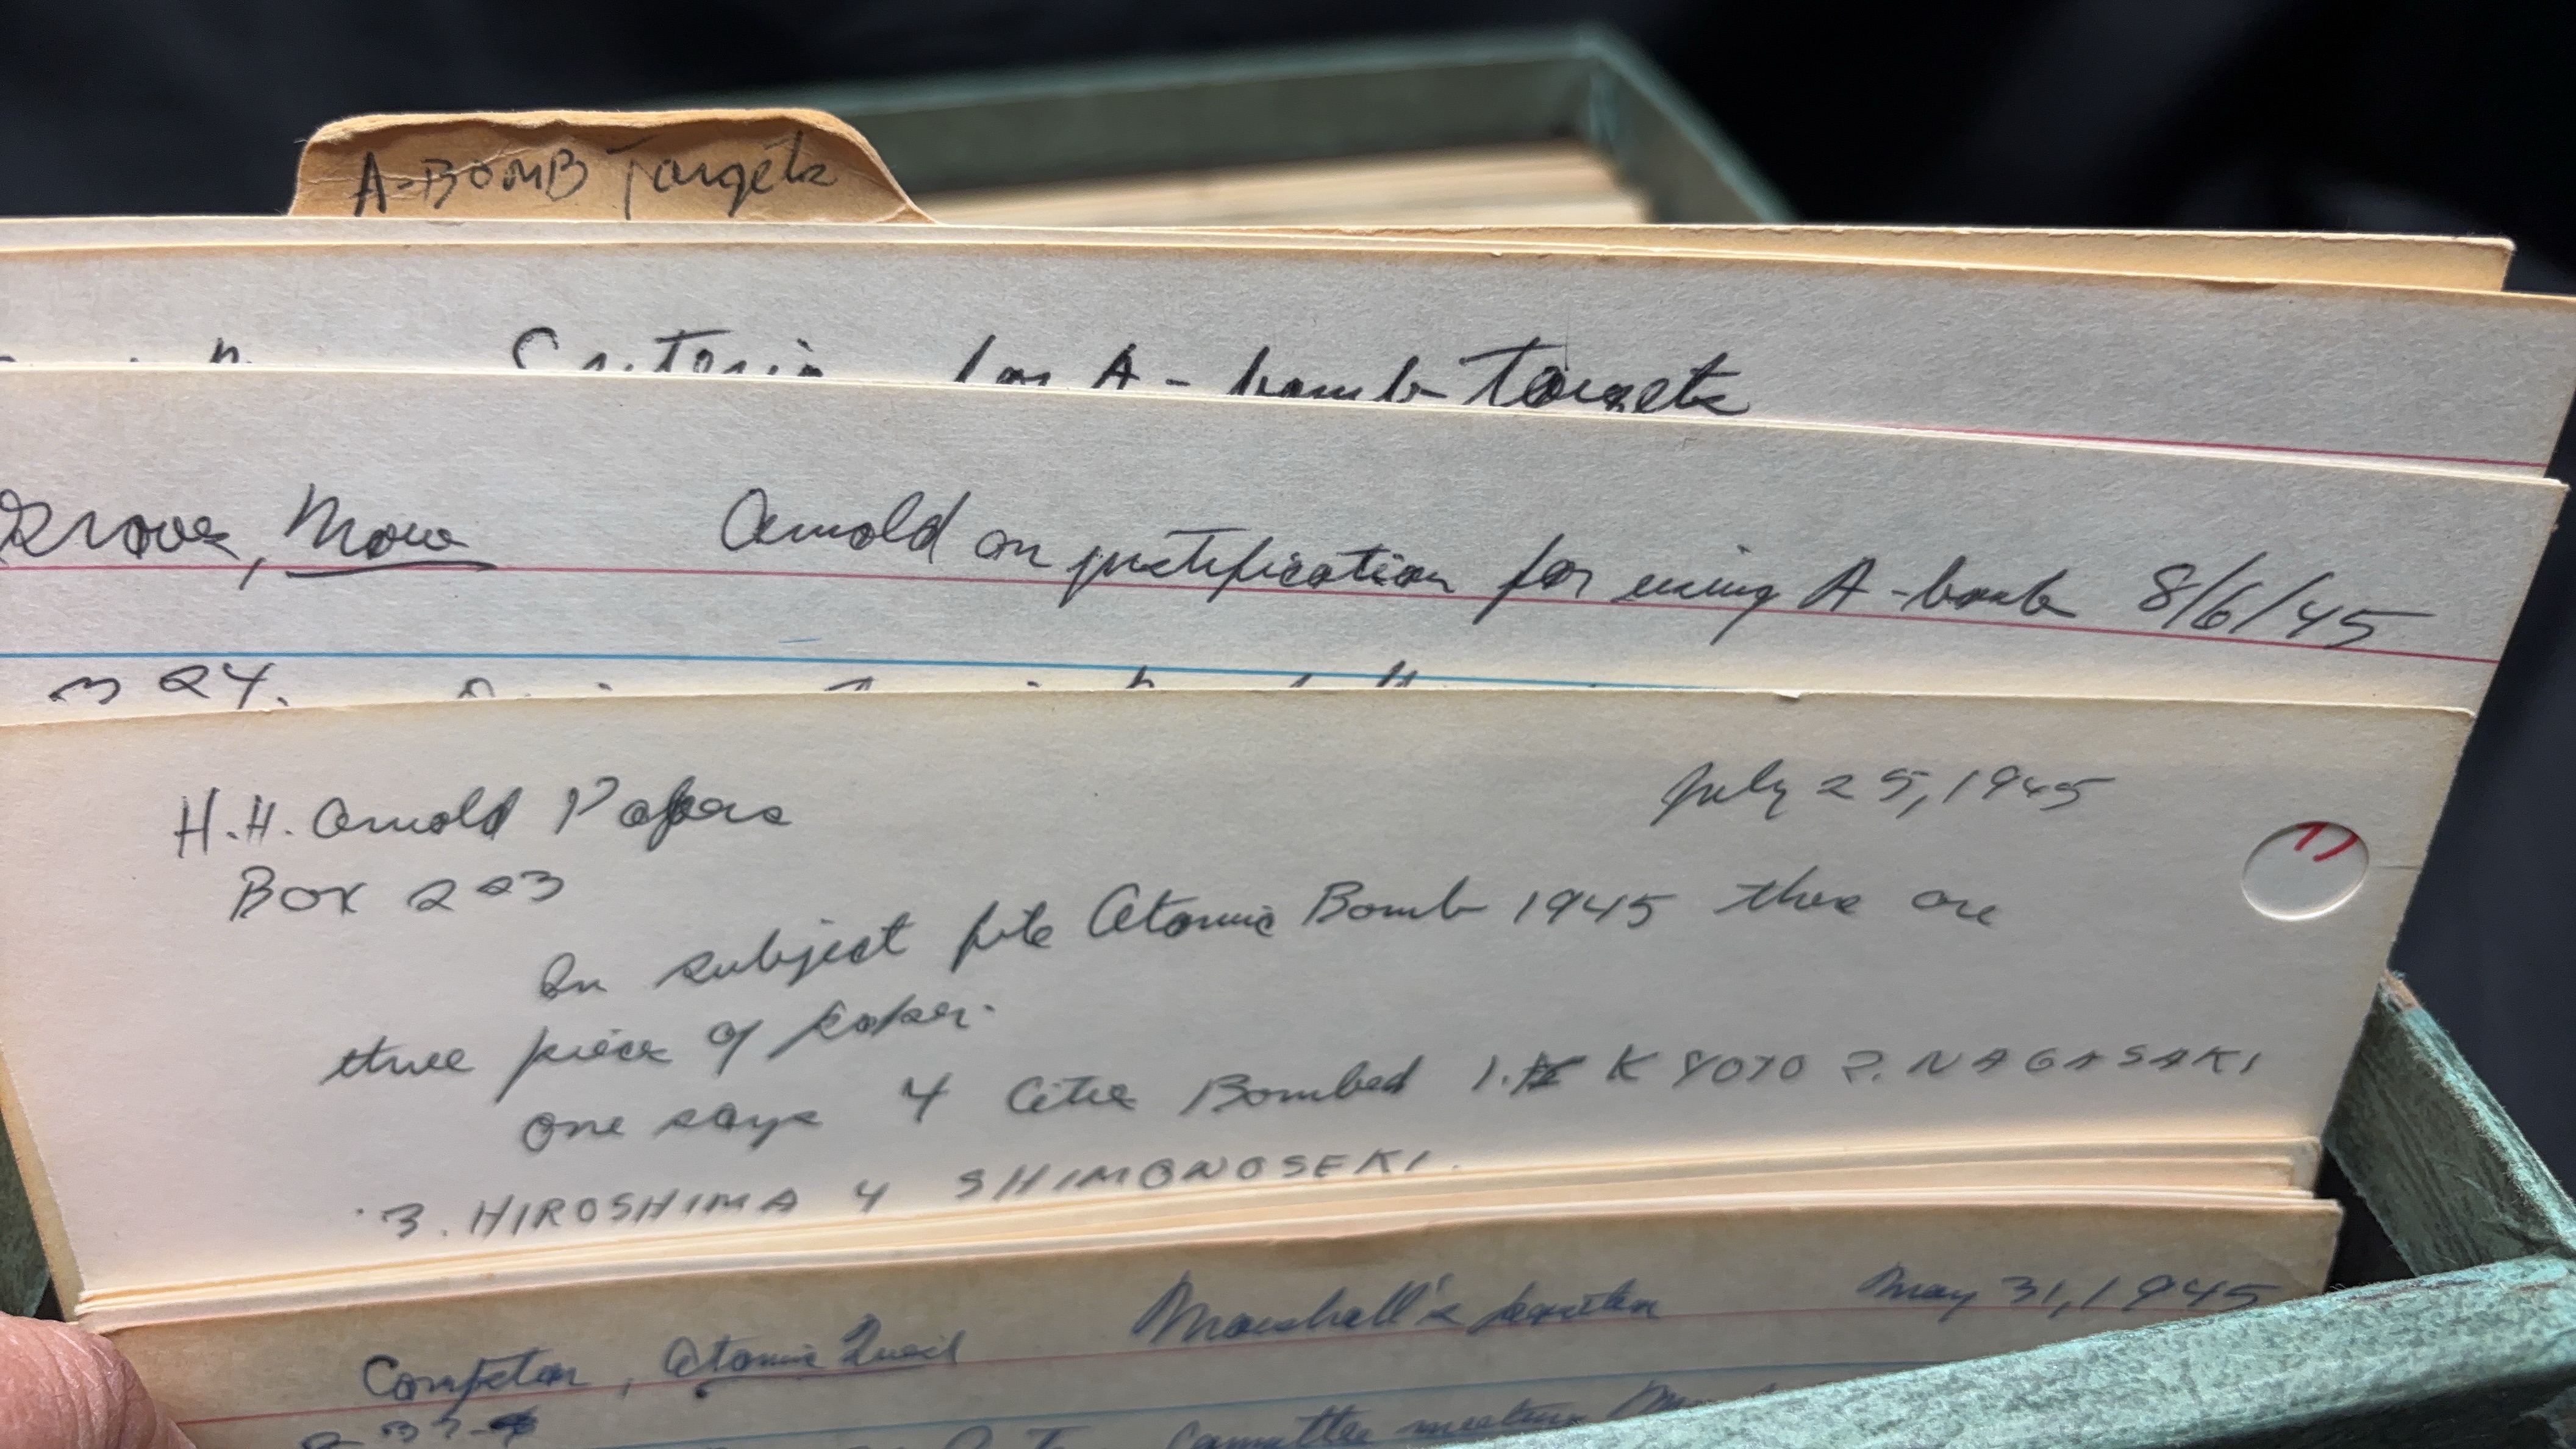 A-BOMB Targets
Criteria for A-bomb Targets
Groves, Now Arnold on justification for using A-bomb 8/6/45
324.
H.H. Arnold Papers July 25, 1945
Box 223
In subject file Atomic Bomb 1945 there are
three pieces of paper.
One says 4 Cities Bombed 1. KYOTO 2. NAGASAKI
3. HIROSHIMA 4 SHIMONOSEKI.
Compton, Atomic Quest Marshall's position May 31, 1945
Committee meeting